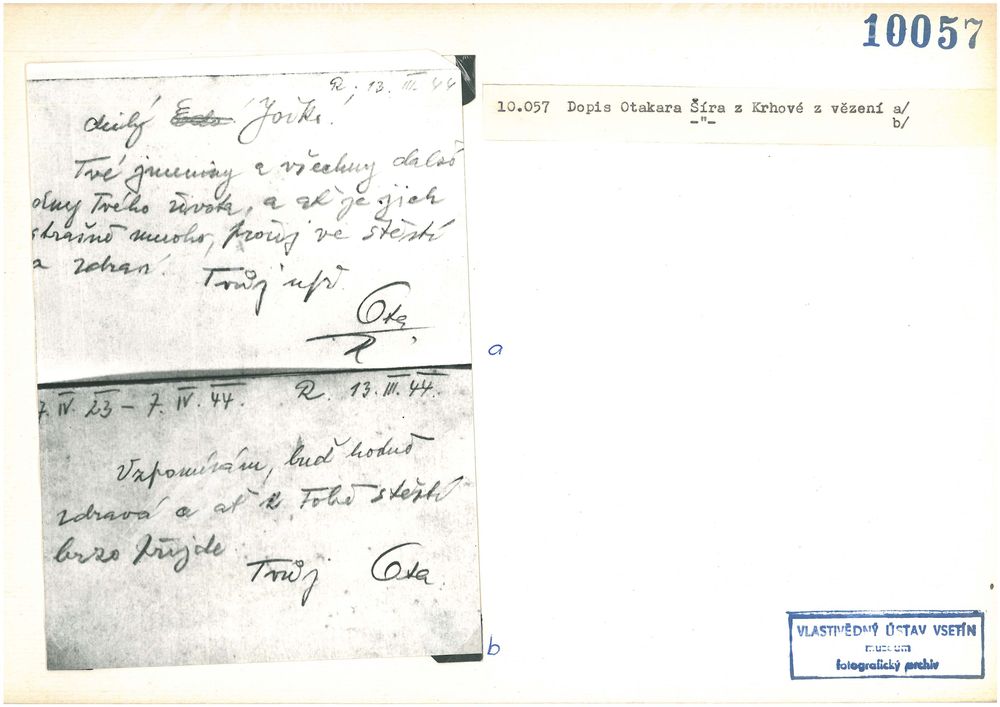 10057
10.057 Dopis Otakara Šíra z Krhové z vězení a/
-"- b/
R. 13. III. 44
Jožko
Tvé jmeniny a všechny další
dny Tvého života, a ať je jich
strašně mnoho, prožij ve štěstí
a zdraví. Tvůj
Ota
R
a
7. IV. 23 – 7. IV. 44. R. 13. III. 44.
Vzpomínám, buď hodně
zdravá a ať k Tobě štěstí
brzo přijde
Tvůj Ota.
b
VLASTIVĚDNÝ ÚSTAV VSETÍN
muzeum
fotografický archiv